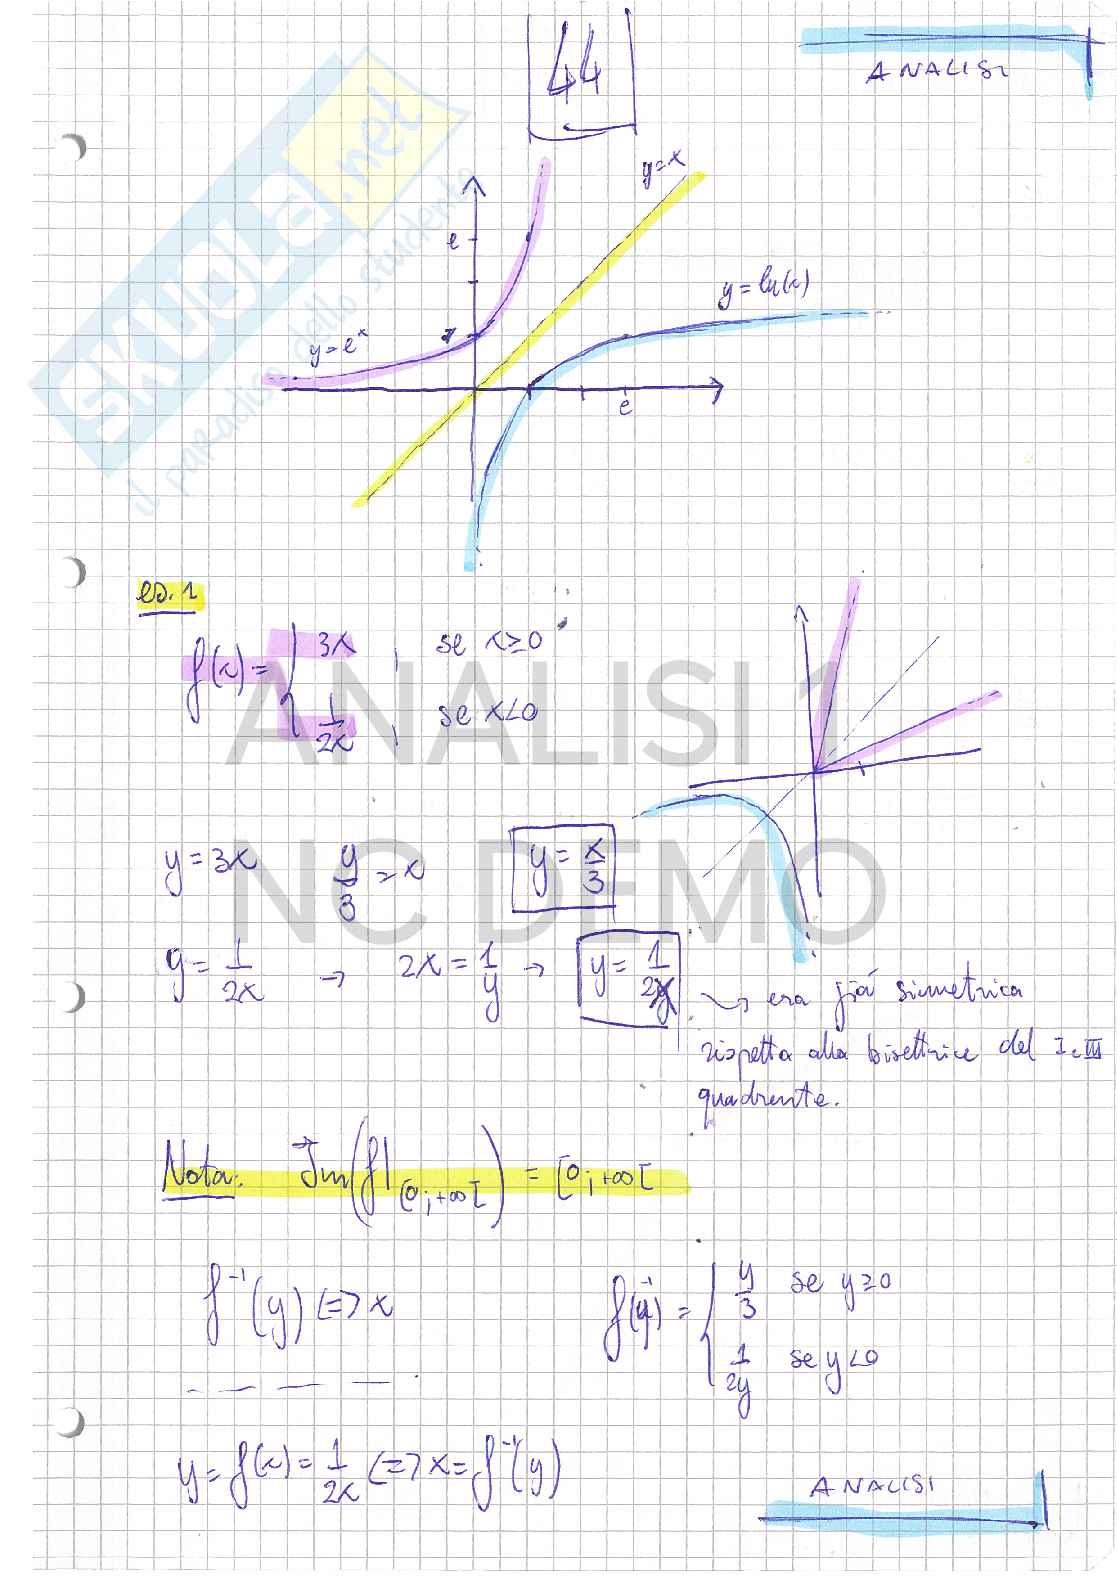 44
ANALISI
SKUOLA.net
il paradiso dello studente
y=x
e
y=ln(x)
1
y=e^x
e
es. 1
f(x) = { 3x , se x≥0
1/2x , se x<0
ANALISI 1
NC DEMO
y=3x y/3=x y=x/3
y=1/2x → 2x=1/y → y=1/2x
→ era già simmetrica
rispetto alla bisettrice del I e III
quadrante.
Nota: Im(f|[0;+∞[) = [0;+∞[
f^-1(y) <=> x
f^-1(y) = { y/3 se y≥0
1/2y se y<0
y=f(x)=1/2x <=> x=f^-1(y)
ANALISI